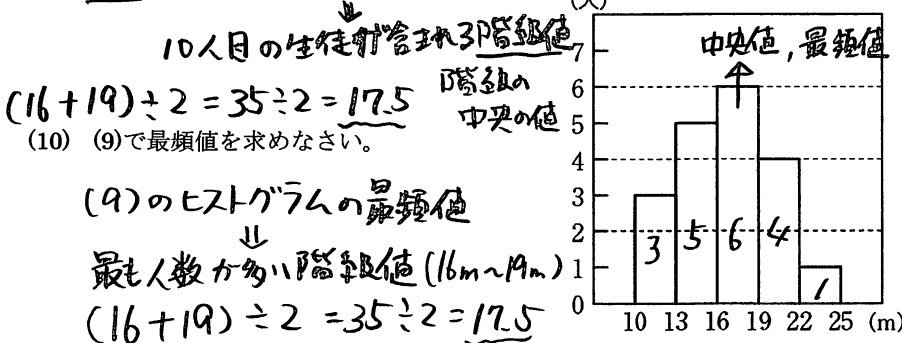 ⇓
10人目の生徒が含まれる階級値
(16+19)÷2=35÷2=17.5
階級の
中央の値
(10) (9)で最頻値を求めなさい。
(9)のヒストグラムの最頻値
⇓
最も人数が多い階級値(16m〜19m)
(16+19)÷2=35÷2=17.5
中央値,最頻値
7
6
5
4
3
2
1
0
3 5 6 4 1
10 13 16 19 22 25 (m)